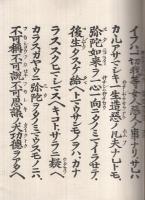 イフハ一切我等女人悪人ノ事ナリサレハカ
カルアサマシキ一生造悪ノ凡夫ナレトモ
弥陀如来ヲ一心一向ニタノミマイラセテ
後生タスケ給ヘトマウサンモノヲハカナ
ラススクヒマシマスヘキコトサラニウタカフヘ
カラスカヤウニ弥陀ヲタノミマウスモノニハ
不可稱不可説不可思議ノ大功徳ヲアタヘ